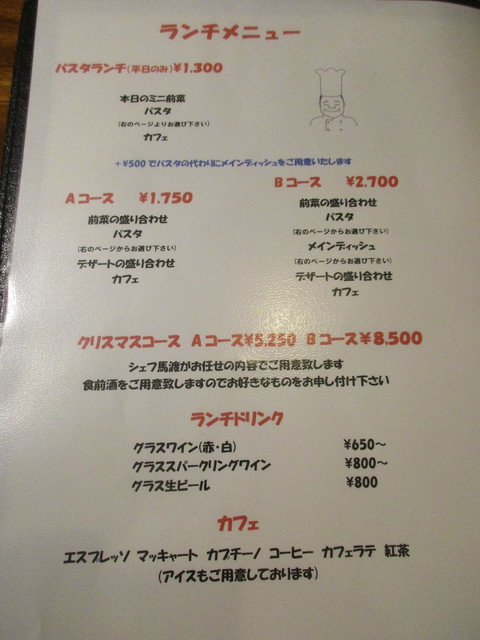 ランチメニュー
パスタランチ(平日のみ)¥1.300
本日のミニ前菜
パスタ
(右のページよりお選び下さい)
カフェ
+¥500でパスタの代わりにメインディッシュをご用意いたします
Aコース ¥1.750
前菜の盛り合わせ
パスタ
(右のページからお選び下さい)
デザートの盛り合わせ
カフェ
Bコース ¥2.700
前菜の盛り合わせ
パスタ
(右のページからお選び下さい)
メインディッシュ
(右のページからお選び下さい)
デザートの盛り合わせ
カフェ
クリスマスコース Aコース¥5.250 Bコース¥8.500
シェフ馬渡がお任せの内容でご用意致します
食前酒をご用意致しますのでお好きなものをお申し付け下さい
ランチドリンク
グラスワイン(赤・白) ¥650~
グラススパークリングワイン ¥800~
グラス生ビール ¥800
カフェ
エスプレッソ マッキャート カプチーノ コーヒー カフェラテ 紅茶
(アイスもご用意しております)